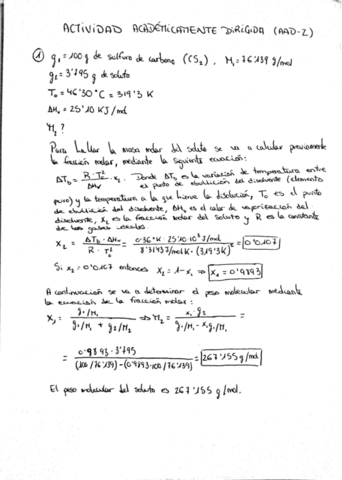 ACTIVIDAD ACADÉMICAMENTE DIRIGIDA (AAD-2)
① g₁ = 100 g de sulfuro de carbono (CS₂), M₁ = 76'139 g/mol
g₂ = 3'795 g de soluto
T₀ = 46'30°C = 319'3 K
ΔHv = 25'10 KJ/mol
M₂?
Para hallar la masa molar del soluto se va a calcular previamente
la fracción molar, mediante la siguiente ecuación:
ΔTb = R·T₀²/ΔHv · x₂. Donde ΔTb es la variación de temperatura entre
el punto de ebullición del disolvente (elemento
puro) y la temperatura a la que hierve la disolución, T₀ es el punto
de ebullición del disolvente, ΔHv es el calor de vaporización del
disolvente, x₂ es la fracción molar del soluto y R es la constante
de los gases ideales.
x₂ = ΔTb·ΔHv / R·T² = 0'36 K · 25'10·10³ J/mol / 8'31437 J/molK · (319'3K)² = 0'0107
Si x₂ = 0'0107 entonces x₁ = 1-x₂ ⇒ x₁ = 0'9893
A continuación se va a determinar el peso molecular mediante
la ecuación de la fracción molar:
x₁ = g₁/M₁ / g₁/M₁ + g₂/M₂ ⇒ M₂ = x₁·g₂ / g₁/M₁ - x₁g₁/M₁
= 0'9893·3'795 / (100/76'139)-(0'9893·100/76'139) = 267'155 g/mol
El peso molecular del soluto es 267'155 g/mol.